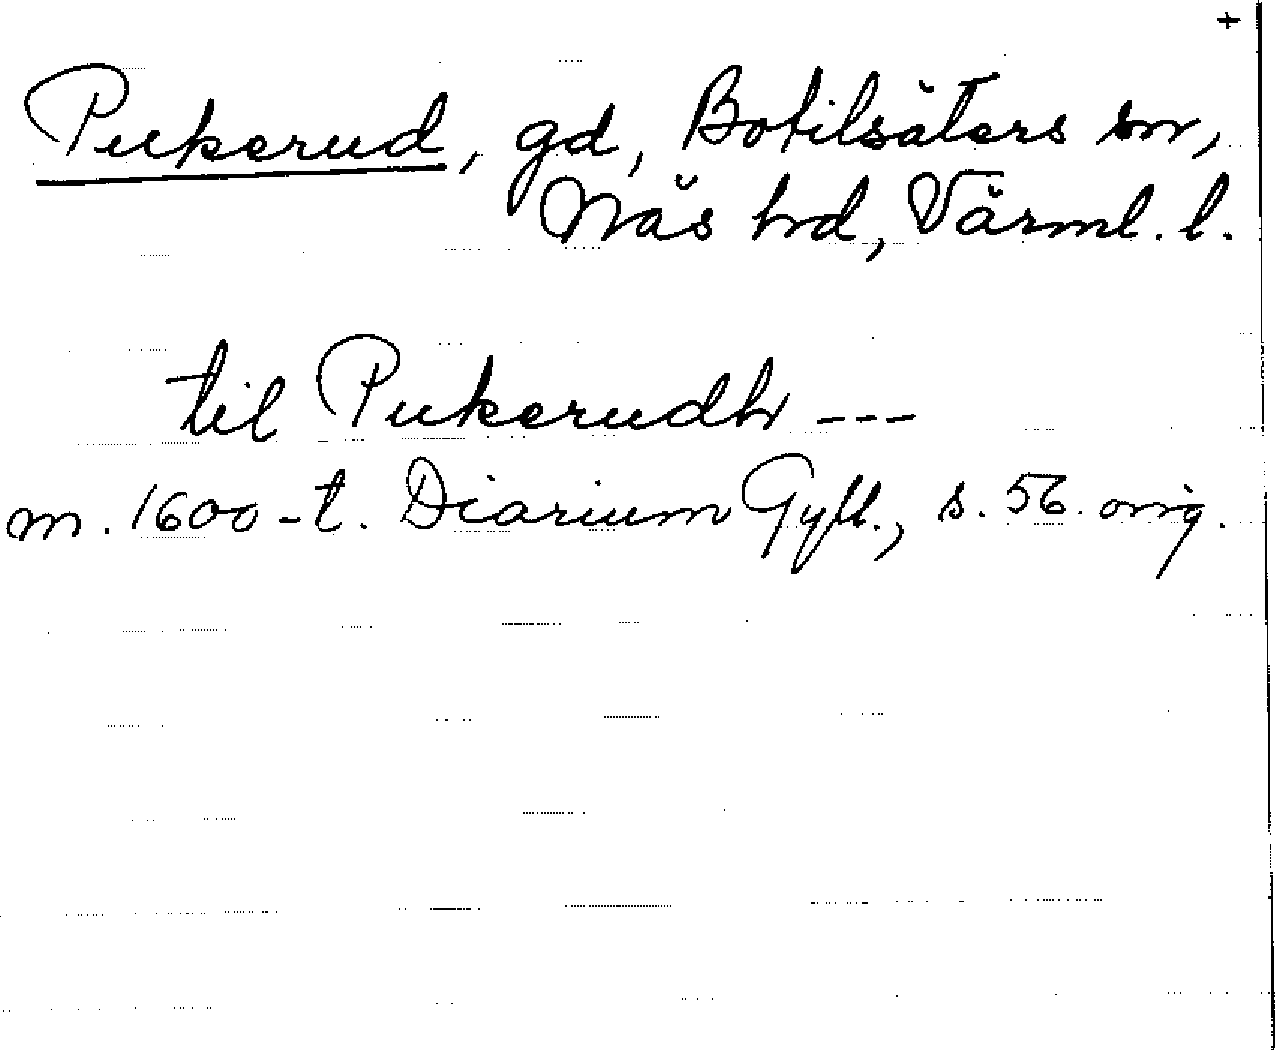 +
Pukerud, gd, Botilsäters sn,
Näs hd, Värml. l.
til Pukerudh ---
m. 1600-t. Diarium Gyll., s. 56. orig.